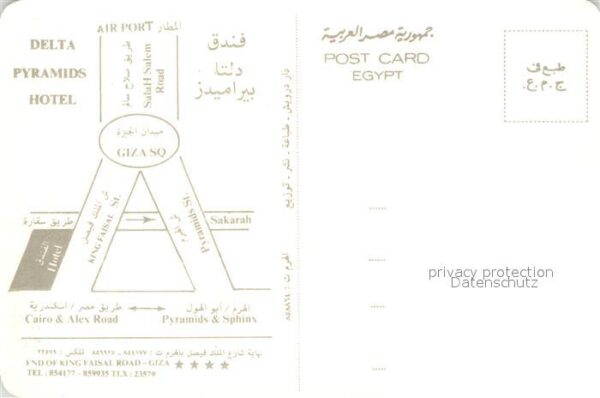 AIR PORT المطار
DELTA
PYRAMIDS
HOTEL
فندق
دلتا
بيراميدز
طريق صلاح سالم
Salah Salem
Road
ميدان الجيزة
GIZA SQ
ش الملك فيصل
KING FAISAL ST.
ش الهرم
Pyramids St.
طريق سقارة
Sakarah
الفندق
Hotel
طريق مصر / اسكندرية
الهرم / أبو الهول
Cairo & Alex Road
Pyramids & Sphinx
نهاية شارع الملك فيصل بالهرم ت : ٨٥٤١٧٧ - ٨٥٩٩٣٥ تلكس : ٢٣٥٧٩
END OF KING FAISAL ROAD - GIZA ★★★★
TEL : 854177 - 859935 TLX : 23579
دار درويش - طباعة - نشر - توزيع
الهرم ت :
جمهورية مصر العربية
POST CARD
EGYPT
طبع في
ج.م.ع.
privacy protection
Datenschutz